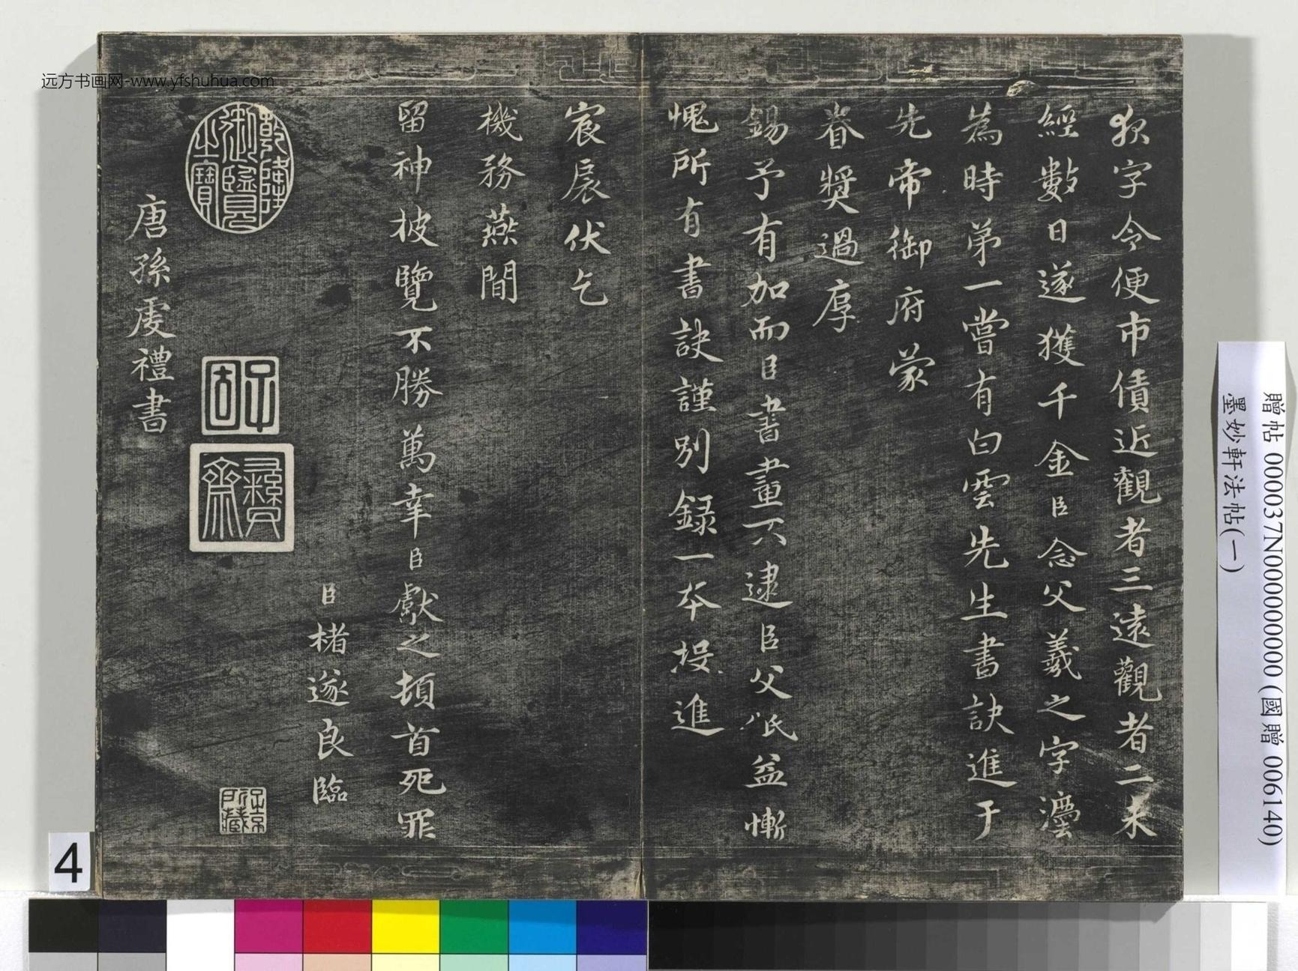 狄字令便市債近觀者三遠觀者二未
經數日遂獲千金臣念父羲之字灋
為時第一嘗有白雲先生書訣進于
先帝御府蒙
眷獎過厚
錫予有加而臣書畫不逮臣父祗益慚
愧所有書訣謹別録一本投進
宸扆伏乞
機務燕間
留神披覽不勝萬幸臣獻之頓首死罪
臣楮遂良臨
乾隆御覽之寶
子固
彝齋
子京所藏
唐孫虔禮書
4
贈帖 000037N000000000 (國贈 006140)
墨妙軒法帖(一)
远方书画网-www.yfshuhua.com